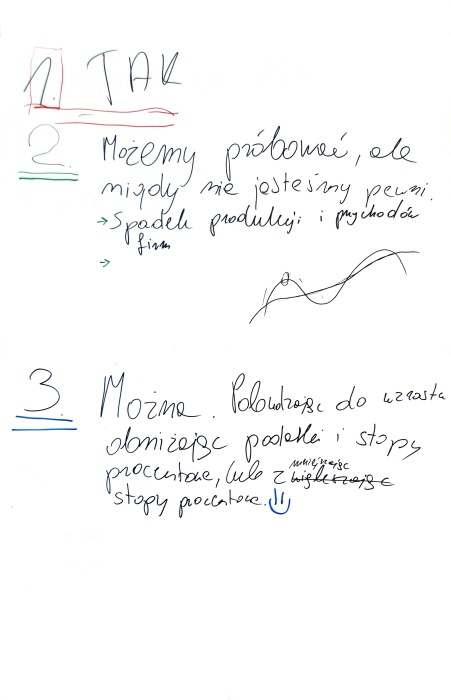 1. TAK
2. Możemy próbować, ale
nigdy nie jesteśmy pewni.
→ Spadek produkcji i przychodów
firm
→
3. Można. Pobudzając do wzrostu
obniżając podatki i stopy
procentowe, lub zmniejszając
stopy procentowe.